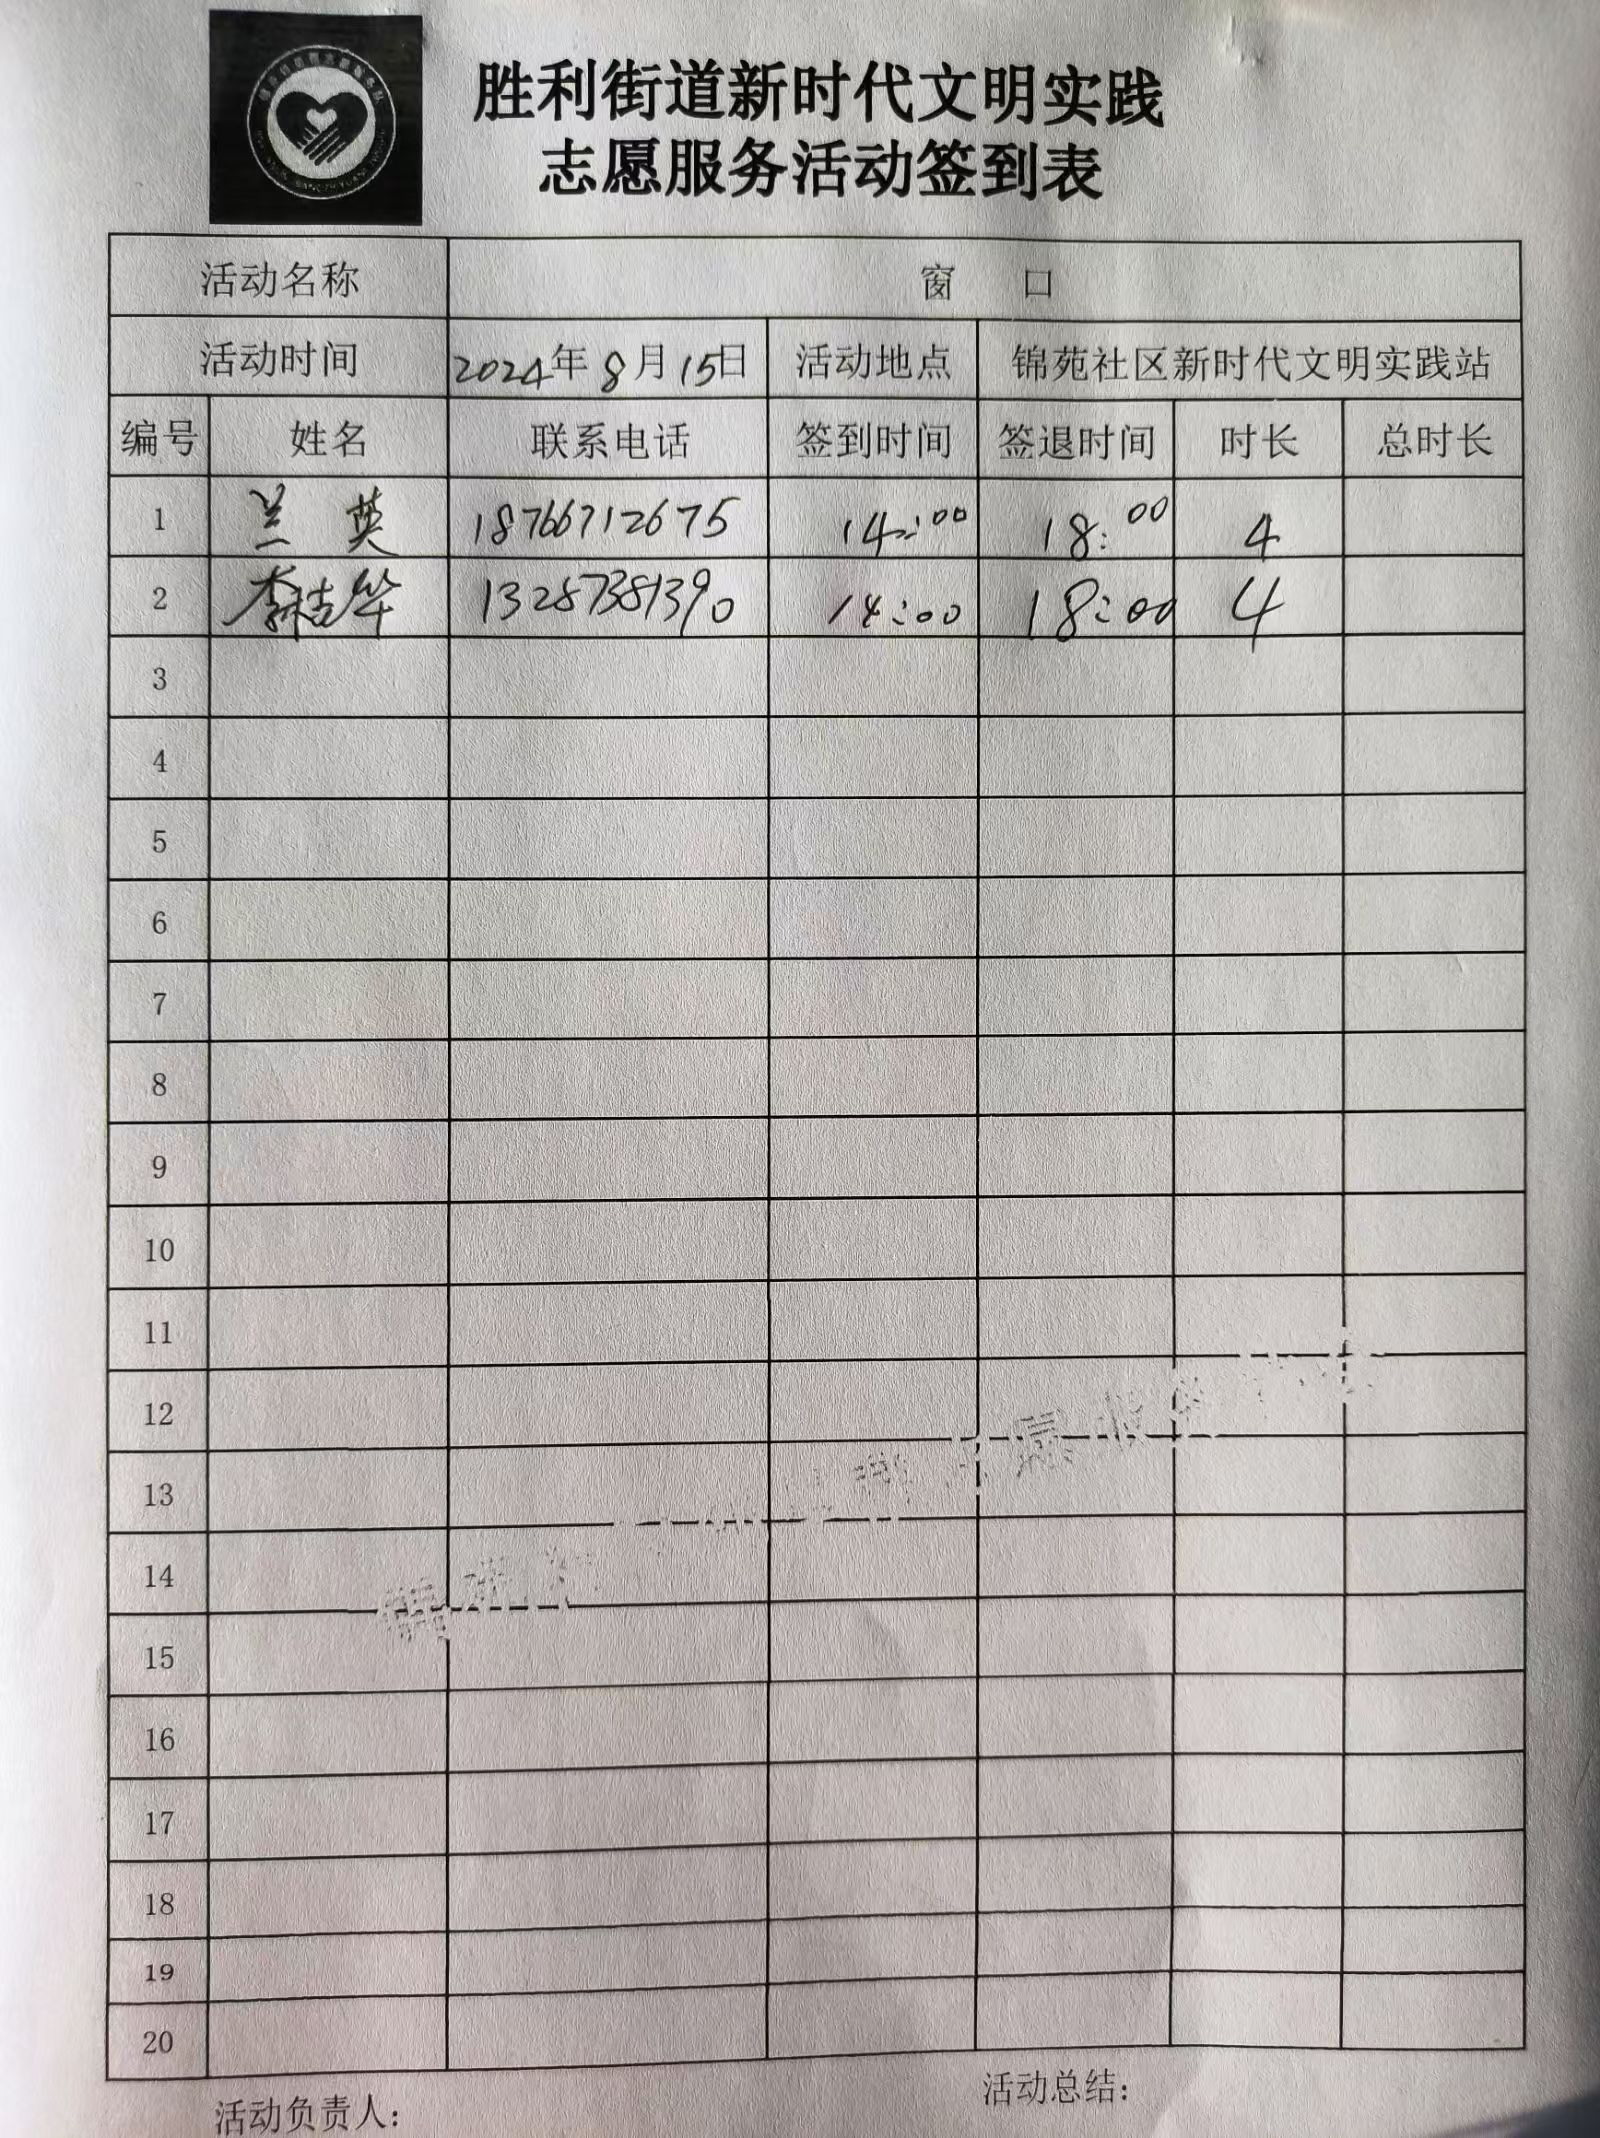 胜利街道新时代文明实践
志愿服务活动签到表
活动名称 窗 口
活动时间 2024年8月15日 活动地点 锦苑社区新时代文明实践站
编号 姓名 联系电话 签到时间 签退时间 时长 总时长
1 兰英 18766712675 14:00 18:00 4
2 李桔华 13287381390 14:00 18:00 4
3
4
5
6
7
8
9
10
11
12
13
14
15
16
17
18
19
20
活动负责人: 活动总结: